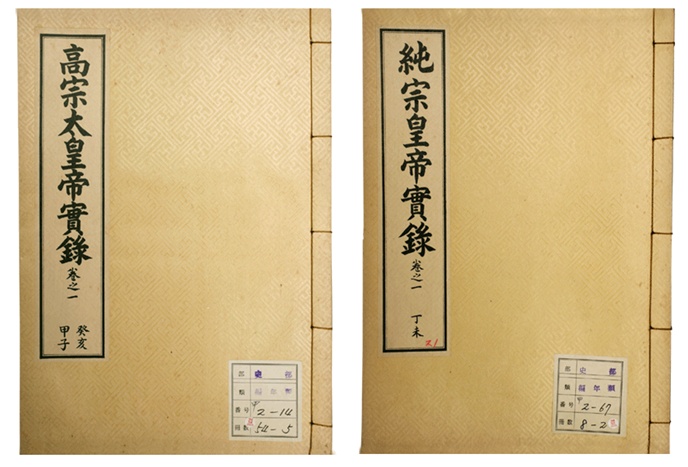 高宗太皇帝實錄 卷之一
癸亥
甲子
部 史部
類 編年類
番号 2-14
冊数 54-5
純宗皇帝實錄 卷之一
丁未
部 史部
類 編年類
番号 2-67
冊数 8-2